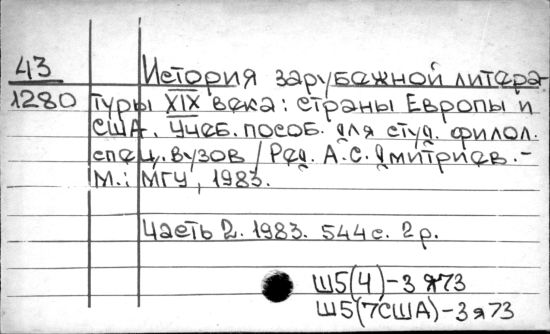 43 История зарубежной литера-
1280 туры XIX века: страны Европы и
США. Учеб. пособ. для студ. филол.
спец. вузов / Ред. А.С. Дмитриев.-
М.: МГУ, 1983.
Часть 2. 1983. 544 с. 2 р.
Ш5(4)-3 я73
Ш5(7США)-3 я 73